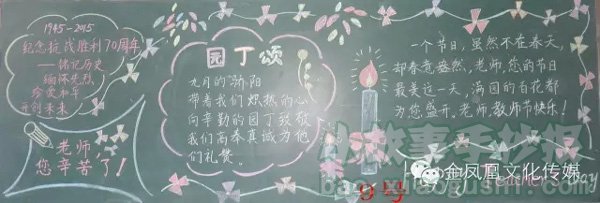 1945-2015
纪念抗战胜利70周年
——铭记历史
缅怀先烈
珍爱和平
开创未来
老师
您辛苦了!
园丁颂
九月的骄阳
带着我们炽热的心
向辛勤的园丁致敬
我们高奉真诚为他
们礼赞。
一个节日,虽然不在春天,
却春意盎然,老师,您的节日
最美这一天,满园的百花都
为您盛开。老师,教师节快乐!
小故事手抄报
金凤凰文化传媒